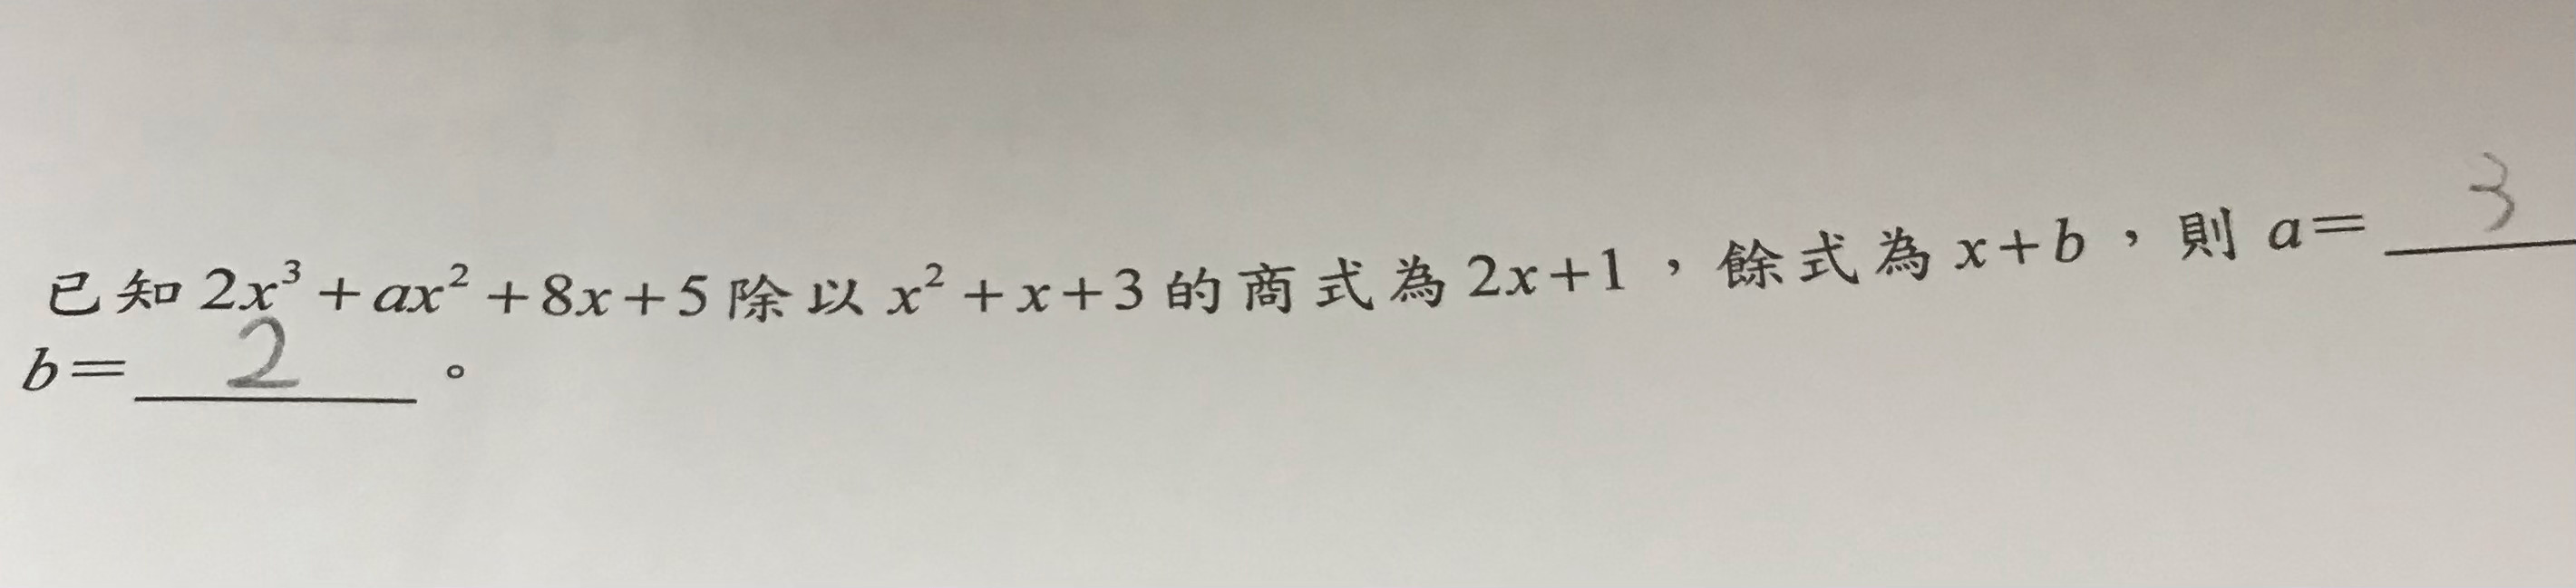 已知 2x³+ax²+8x+5 除以 x²+x+3 的商式為 2x+1，餘式為 x+b，則 a= 3
b= 2 。